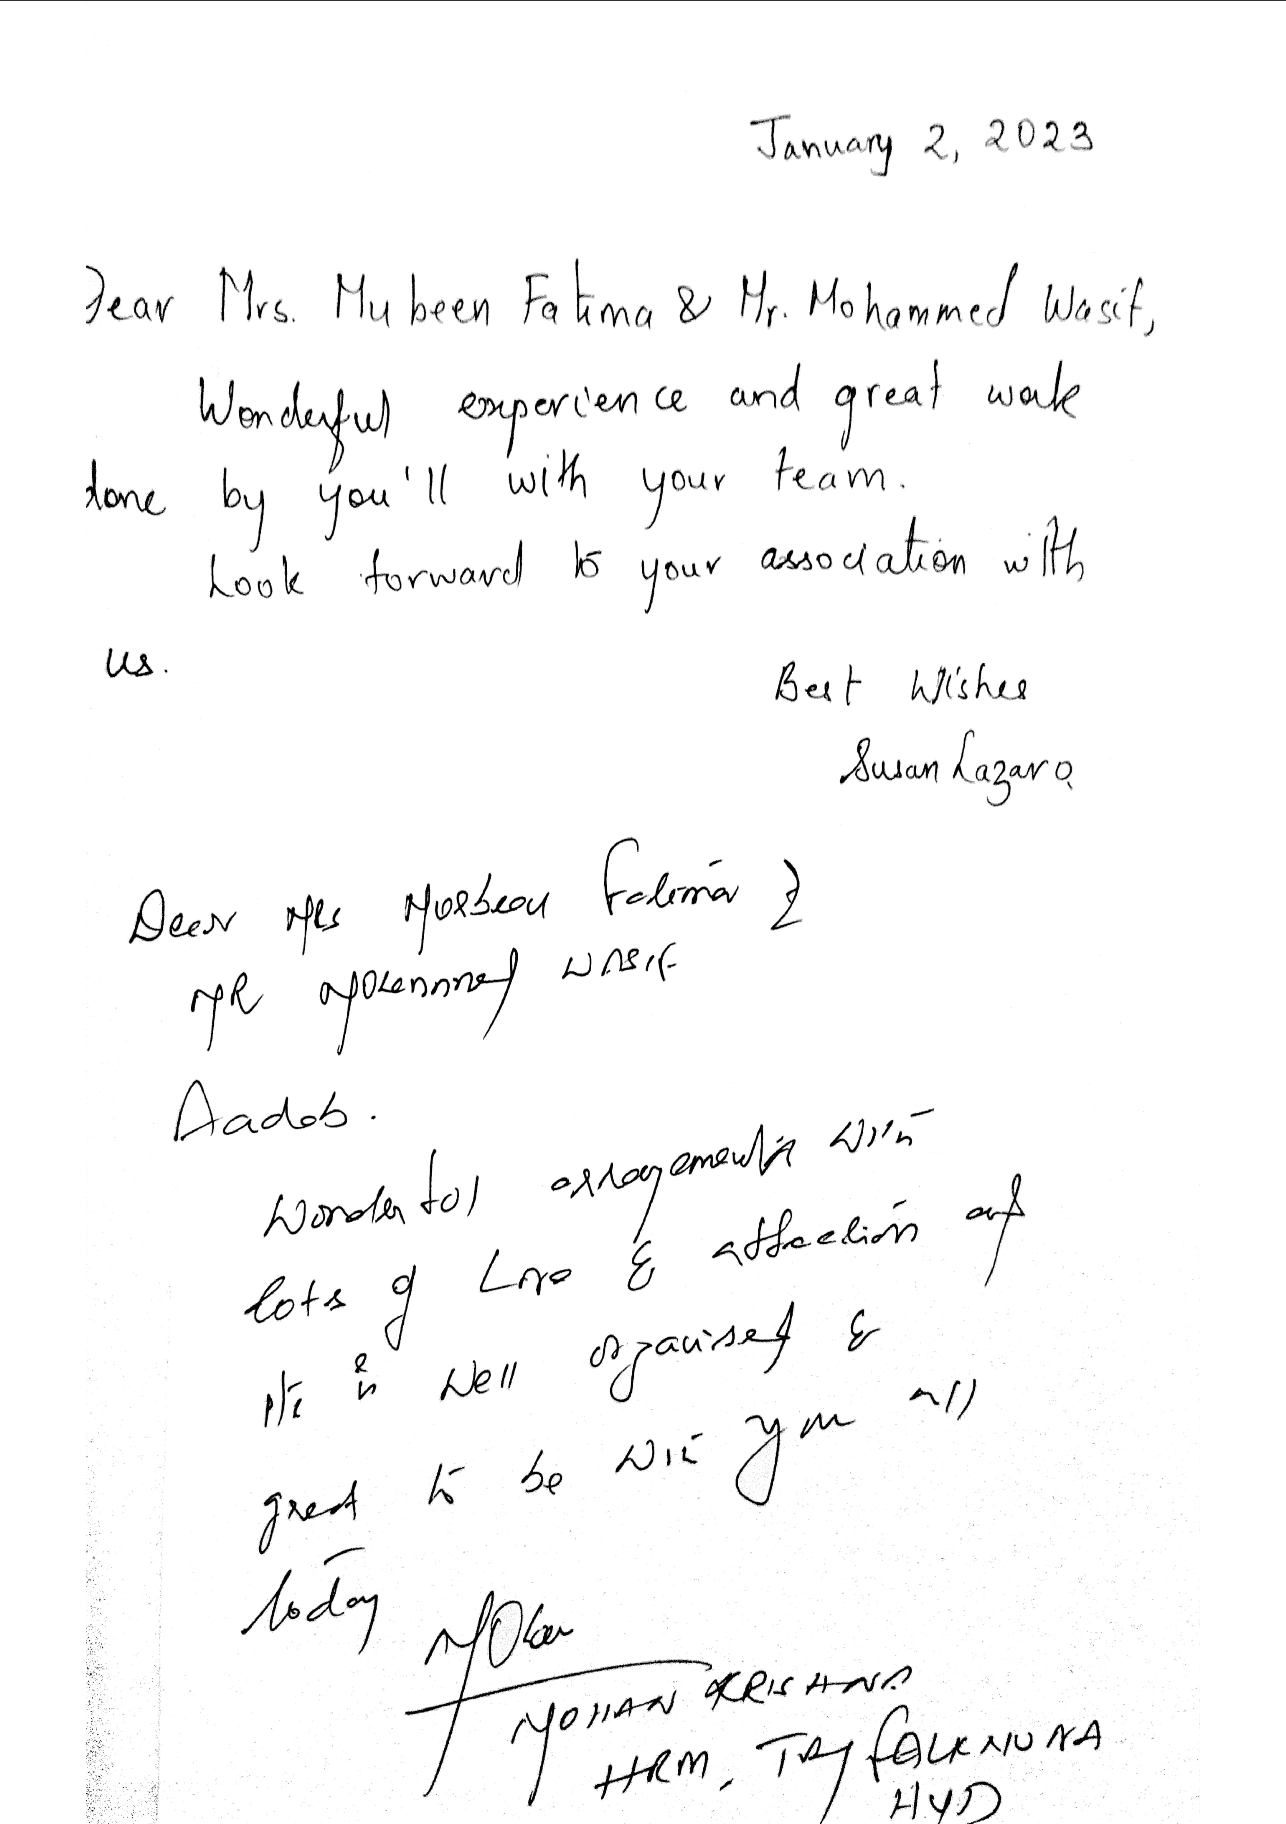 January 2, 2023
Dear Mrs. Mubeen Fatima & Mr. Mohammed Wasif,
Wonderful experience and great work
done by you'll with your team.
Look forward to your association with
us.
Best Wishes
Susan Lazaro
Dear Mrs Mubeen Fatima &
MR Mohammed WASIF
Aadab.
Wonderful arrangements with
lots of Love & affection and
is well organised &
great to be with you all
today
MOHAN KRISHNA
HRM, TAJ FALAKNUMA
HYD